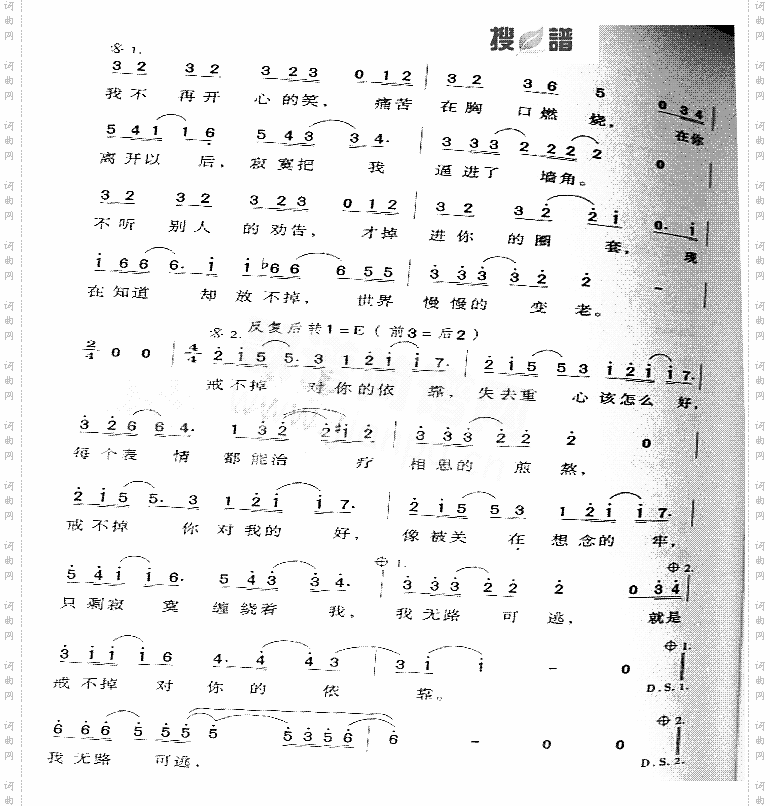 搜 譜
1.
3 2 3 2 3 2 3 0 1 2 3 2 3 6 5 0 3 4
我不 再开 心的笑， 痛苦 在胸 口燃 烧， 在你
5 4 1 1 6 5 4 3 3 4· 3 3 3 2 2 2 2 0
离开以 后， 寂寞把 我 逼进了 墙角。
3 2 3 2 3 2 3 0 1 2 3 2 3 2 2 1 0· 1
不听 别人 的劝告， 才掉 进你 的圈 套， 现
1 6 6 6· 1 1 ♭6 6 6 5 5 3 3 3 3 2 2 –
在知道 却放不掉， 世界 慢慢的 变 老。
2. 反复后转1=E（前3=后2）
2/4 0 0 4/4 2 1 5 5· 3 1 2 1 1 7· 2 1 5 5 3 1 2 1 1 7·
戒不掉 对你的依 靠， 失去重 心该怎么 好，
3 2 6 6 4· 1 3 2 2 ♯1 2 3 3 3 2 2 2 0
每个表 情 都能治 疗 相思的 煎 熬，
2 1 5 5· 3 1 2 1 1 7· 2 1 5 5 3 1 2 1 1 7·
戒不掉 你对我的 好， 像被关 在想念的 牢，
1. 2.
5 4 1 1 6· 5 4 3 3 4· 3 3 3 2 2 2 0 3 4
只剩寂 寞 缠绕着 我， 我无路 可 逃， 就是
1.
3 1 1 1 6 4· 4 4 3 3 1 1 – 0
戒不掉 对 你 的 依 靠。 D.S.1.
2.
6 6 6 5 5 5 5 5 3 5 6 6 – 0 0
我无路 可逃， D.S.2.
词曲网